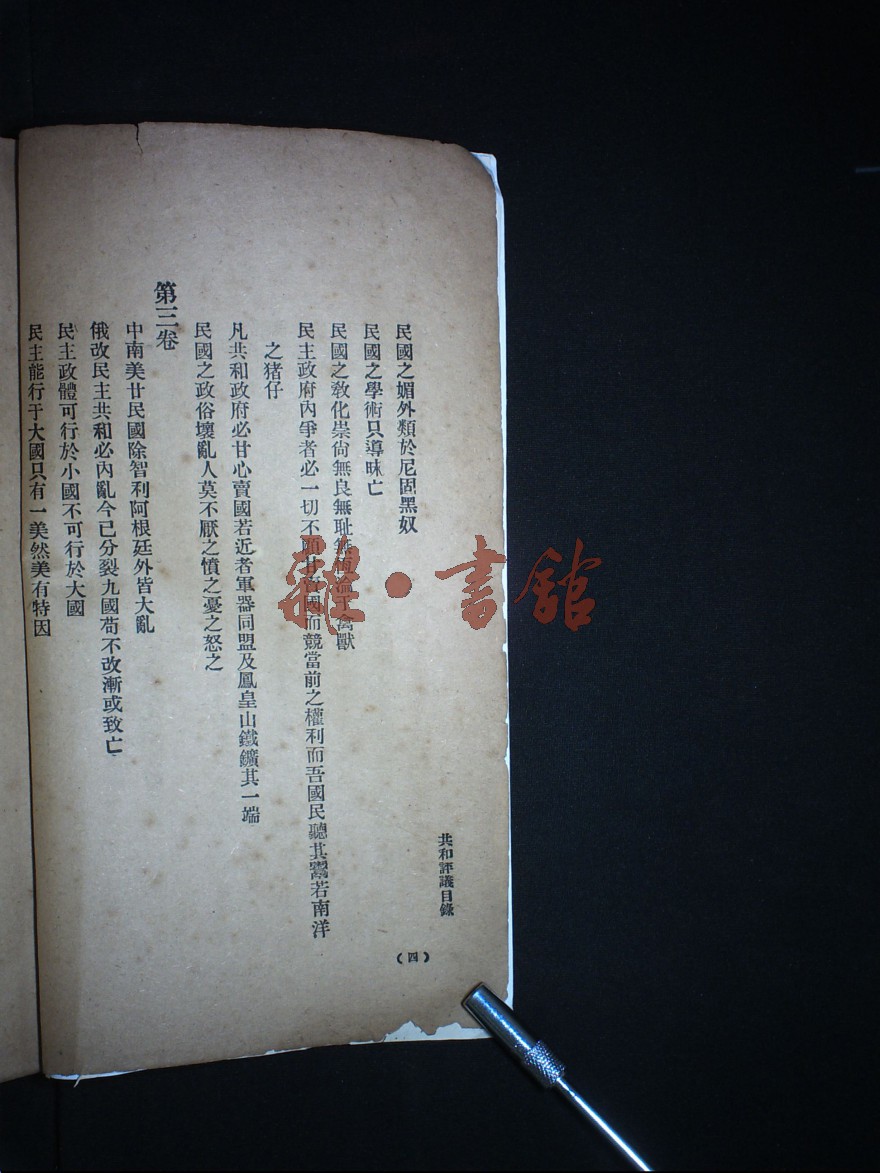 共和評議目錄
(四)
民國之媚外類於尼固黑奴
民國之學術只導昧亡
民國之敎化崇尙無良無耻無恆淪于禽獸
民主政府內爭者必一切不顧甘賣國而競當前之權利而吾國民聽其鬻若南洋
之猪仔
凡共和政府必甘心賣國若近者軍器同盟及鳳皇山鐵鑛其一端
民國之政俗壞亂人莫不厭之憤之憂之怒之
第三卷
中南美廿民國除智利阿根廷外皆大亂
俄改民主共和必內亂今已分裂九國苟不改漸或致亡
民主政體可行於小國不可行於大國
民主能行于大國只有一美然美有特因
雜·書館